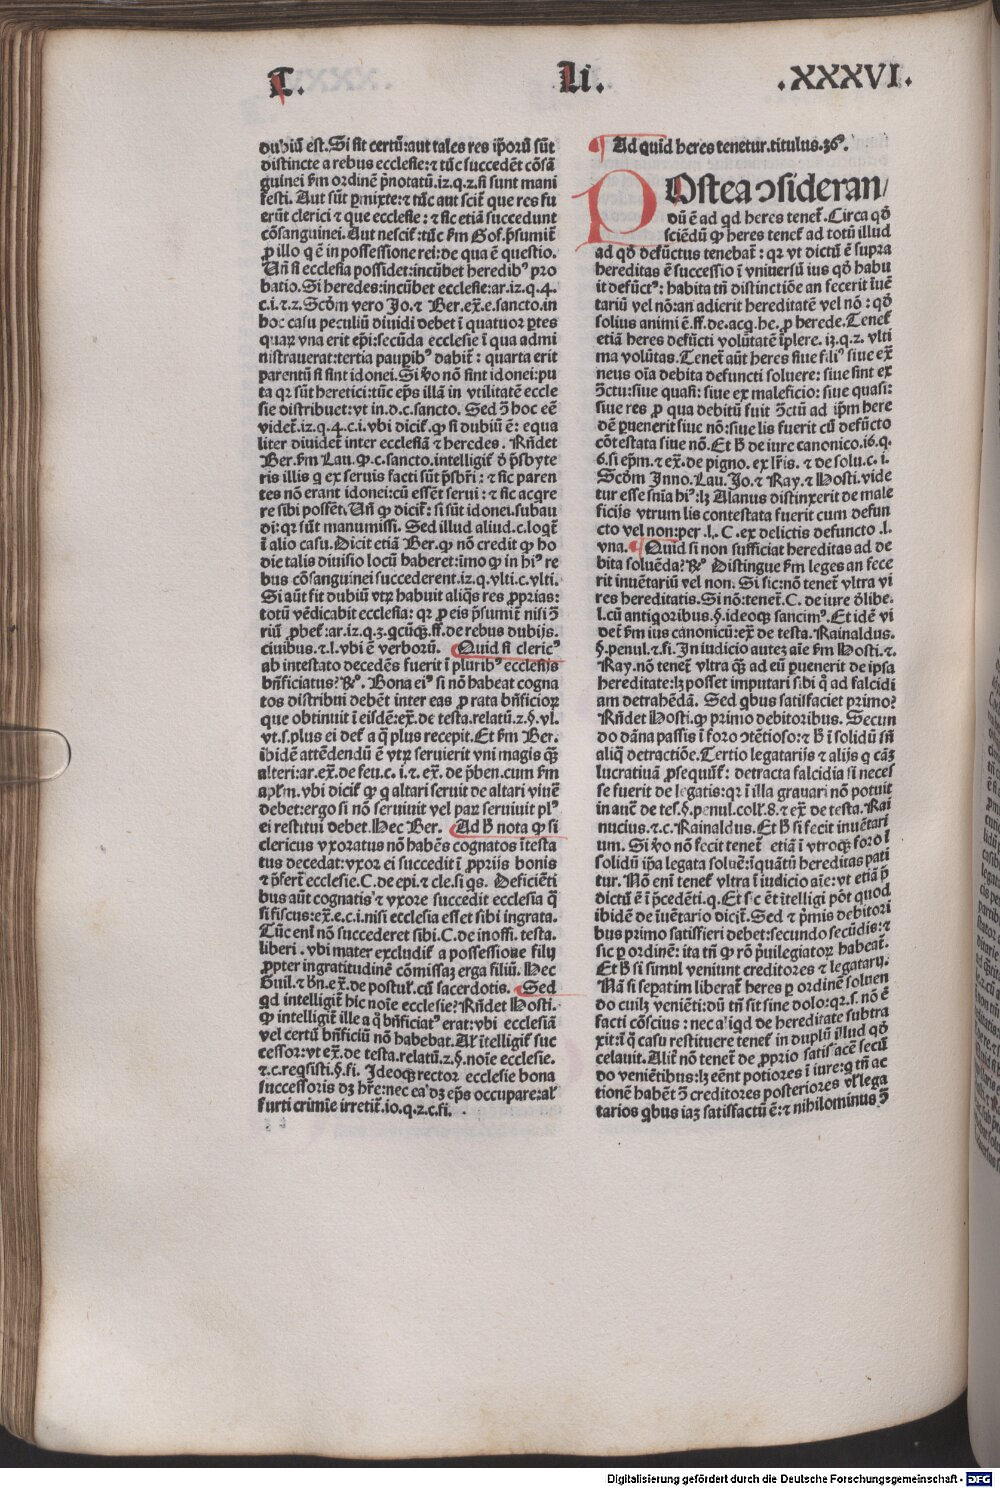 T. Li. .XXXVI.
dubiū est. Si sit certū: aut tales res ip̄orū sūt
distincte a rebus ecclesie: ⁊ tūc succedēt cōsā
guinei ẜm ordinē p̄notatū. iz. q. z. si sunt mani
festi. Aut sūt ꝑmixte: ⁊ tūc aut scit̄ que res fu
erūt clerici ⁊ que ecclesie: ⁊ sic etiā succedunt
cōsanguinei. Aut nescit̄: tūc ẜm Gof. p̄sumit̄
ꝓ illo q̄ ē in possessione rei: de qua ē questio.
Un̄ si ecclesia possidet: incūbet heredibꝰ pro
batio. Si heredes: incūbet ecclesie: ar. iz. q. 4.
c. i. ⁊. z. Scd̄m vero Jo. ⁊ Ber. ex̄. e. sancto. in
hoc casu peculiū diuidi debet ī quatuor ꝑtes
quaꝝ vna erit ep̄i: secūda ecclesie ī qua admi
nistrauerat: tertia pauꝑibꝰ dabit̄: quarta erit
parentū si sint idonei. Si ꝟo nō sint idonei: pu
ta qꝛ sūt heretici: tūc ep̄s illā in vtilitatē eccle
sie distribuet: vt in. d. c. sancto. Sed ↄ̄ hoc eē
videt̄. iz. q. 4. c. i. vbi dicit̄. ꝙ si dubiū ē: equa
liter diuidet̄ inter ecclesiā ⁊ heredes. Rn̄det
Ber. ẜm Lau. ꝙ. c. sancto. intelligit̄ ď p̄sbyte
ris illis q̄ ex seruis facti sūt p̄sbr̄i: ⁊ sic paren
tes nō erant idonei: cū essēt serui: ⁊ sic acq̄re
re sibi possēt. Un̄ ꝙ dicit̄: si sūt idonei. subau
di: qꝛ sūt manumissi. Sed illud aliud. c. loqt̄
ī alio casu. Dicit etiā Ber. ꝙ nō credit ꝙ ho
die talis diuisio locū haberet: imo ꝙ in hiꝰ re
bus cōsanguinei succederent. iz. q. vlti. c. vlti.
Si aūt sit dubiū vtꝝ habuit aliq̄s res ꝓprias:
totū vēdicabit ecclesia: qꝛ ꝓ eis p̄sumit̄ nisi ↄ̄
riū ꝓbet̄: ar. iz. q. 3. qcūqꝫ. ff. de rebus dubijs.
ciuibus. ⁊. l. vbi ē verborū. Quid si clericꝰ
ab intestato decedēs fuerit ī pluribꝰ ecclesijs
bn̄ficiatus? ℞ꝰ. Bona eiꝰ si nō habeat cogna
tos distribui debēt inter eas ꝓ rata bn̄ficioꝝ
que obtinuit ī eisdē: ex̄. de testa. relatū. z. §. vl.
vt. s. plus ei def̄ a q̄ plus recepit. Et ẜm Ber.
ibidē attēdendū ē vtꝝ seruierit vni magis qꝫ
alteri: ar. ex̄. de feu. c. i. ⁊ ex̄. de p̄ben. cum ẜm
ap̄lm. vbi dicit̄ ꝙ q̄ altari seruit de altari viuē
debet: ergo si nō seruiuit vel paꝝ seruiuit plꝰ
ei restitui debet. Hec Ber. Ad ħ nota ꝙ si
clericus vxoratus nō habēs cognatos ītesta
tus decedat: vxor ei succedit ī ꝓprijs bonis
⁊ p̄fert̄ ecclesie. C. de epi. ⁊ cle. si qs. Deficiēti
bus aūt cognatis ⁊ vxore succedit ecclesia q̄
si fiscus: ex̄. e. c. i. nisi ecclesia esset sibi ingrata.
Tūc enī nō succederet sibi. C. de inoffi. testa.
liberi. vbi mater excludit̄ a possessione filij
ꝓpter ingratitudinē cōmissaꝫ erga filiū. Hec
Guil. ⁊ ħn. ex̄. de postul. cū sacerdotis. Sed
qd intelligit̄ hic noīe ecclesie? Rn̄det Hosti.
ꝙ intelligit̄ ille a q̄ bn̄ficiatꝰ erat: vbi ecclesiā
vel certū bn̄ficiū nō habebat. Al̄ ītelligit̄ suc
cessor: vt ex̄. de testa. relatū. z. §. noīe ecclesie.
⁊. c. reqsisti. §. fi. Ideoqꝫ rector ecclesie bona
successoris dꝫ hr̄e: nec ea dꝫ ep̄s occupare: al̄
furti crimīe irretit̄. io. q. z. c. fi.
Ad quid heres tenetur. titulus. 36ꝰ.
POstea ↄsideran/
dū ē ad qd heres tenet̄. Circa qđ
sciēdū ꝙ heres tenet̄ ad totū illud
ad qđ defūctus tenebat̄: qꝛ vt dictū ē supra
hereditas ē successio ī vniuersū ius qđ habu
it defūctꝰ: habita tn̄ distinctiōe an fecerit īuē
tariū vel nō: an adierit hereditatē vel nō: qđ
solius animi ē. ff. de. acq. he. ꝓ herede. Tenet̄
etiā heres defūcti volūtatē īplere. iz. q. z. vlti
ma volūtas. Tenet̄ aūt heres siue filiꝰ siue ex̄
neus oīa debita defuncti soluere: siue sint ex
ↄ̄ctu: siue quasi: siue ex maleficio: siue quasi:
siue res ꝓ qua debitū fuit ↄ̄ctū ad ip̄m here
dē ꝑuenerit siue nō: siue lis fuerit cū defūcto
cōtestata siue nō. Et ħ de iure canonico. i6. q.
6. si ep̄m. ⁊ ex̄. de pigno. ex lr̄is. ⁊ de solu. c. i.
Scd̄m Inno. Lau. Jo. ⁊ Ray. ⁊ Hosti. vide
tur esse sn̄ia hiꝰ: lꝫ Alanus distinxerit de male
ficijs vtrum lis contestata fuerit cum defun
cto vel non: per. l. C. ex delictis defuncto. l.
vna. Quid si non sufficiat hereditas ad de
bita soluēda? ℞ꝰ Distingue ẜm leges an fece
rit inuētariū vel non. Si sic: nō tenet̄ vltra vi
res hereditatis. Si nō: tenet̄. C. de iure ďlibe.
l. cū antiqoribus. §. ideoqꝫ sancimꝰ. Et idē vi
det̄ ẜm ius canonicū: ex̄. de testa. Rainaldus.
§. penul. ⁊ fi. In iudicio auteꝫ aīe ẜm Hosti. ⁊
Ray. nō tenet̄ vltra qꝫ ad eū ꝑuenerit de ipsa
hereditate: lꝫ posset imputari sibi q̄ ad falcidi
am detrahēdā. Sed qbus satisfaciet primo?
Rn̄det Hosti. ꝙ primo debitoribus. Secun
do dāna passis ī foro ↄtētioso: ⁊ ħ ī solidū sn̄
aliq̄ detractiōe. Tertio legatarijs ⁊ alijs q̄ cāꝫ
lucratiuā ꝓsequūt̄: detracta falcidia si neces
se fuerit de legatis: qꝛ ī illa grauari nō potuit
in auē de tes̄. §. penul. coll̄. 8. ⁊ ex̄. de testa. Rai
nucius. ⁊. c. Rainaldus. Et ħ si fecit inuētari
um. Si ꝟo nō fecit tenet̄ etiā ī vtroqꝫ foro ī
solidū ip̄a legata soluē: īquātū hereditas pati
tur. Nō enī tenet̄ vltra ī iudicio aīe: vt etiā p̄
dictū ē ī p̄cedēti. q. Et sic ēt ītelligi pōt quod
ibidē de īuētario dicit̄. Sed ⁊ p̄mis debitori
bus primo satisfieri debet: secundo secūdis: ⁊
sic ꝑ ordinē: ita tn̄ ꝙ rō p̄uilegiatoꝝ habeat̄.
Et ħ si simul veniunt creditores ⁊ legatarij.
Nā si seꝑatim liberat̄ heres ꝑ ordinē soluen
do cuilꝫ veniēti: dū tn̄ sit sine dolo: qꝛ. s. nō ē
facti cōscius: nec aliqd de hereditate subtra
xit: ī q̄ casu restituere tenet̄ in duplū illud qđ
celauit. Alit̄ nō tenet̄ de ꝓprio satisfacē secū
do veniētibus: lꝫ eēnt potiores ī iure: q̄ tn̄ ac
tionē habēt ↄ̄ creditores posteriores vl̄ lega
tarios qbus iaꝫ satisfactū ē: ⁊ nihilominus ↄ̄
Digitalisierung gefördert durch die Deutsche Forschungsgemeinschaft - DFG